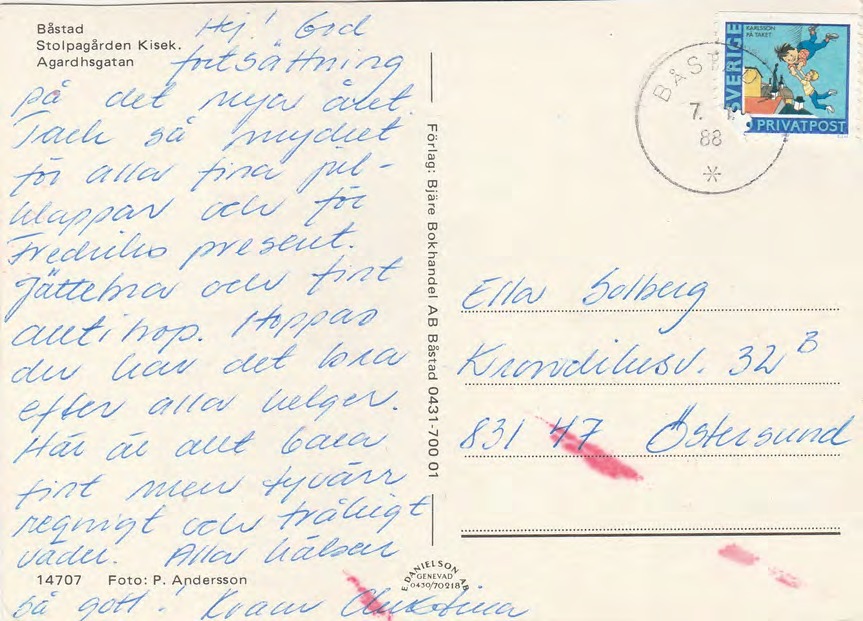 Båstad
Stolpagården Kisek.
Agardhsgatan
Hej! God
fortsättning
på det nya året.
Tack så mycket
för alla fina jul-
klappar och för
Fredriks present.
Jättebra och fint
alltihop. Hoppas
du har det bra
efter alla helger.
Här är allt bara
fint men tyvärr
regnigt och tråkigt
väder. Alla hälsar
så gott! Kram Christina
14707 Foto: P. Andersson
Förlag: Bjäre Bokhandel AB Båstad 0431-700 01
E. DANIELSON AB
GENEVAD
0430/70218
SVERIGE
KARLSSON
PÅ TAKET
PRIVATPOST
BÅST
7. 1.
88
Ella Solberg
Krondikesv. 32 B
831 47 Östersund